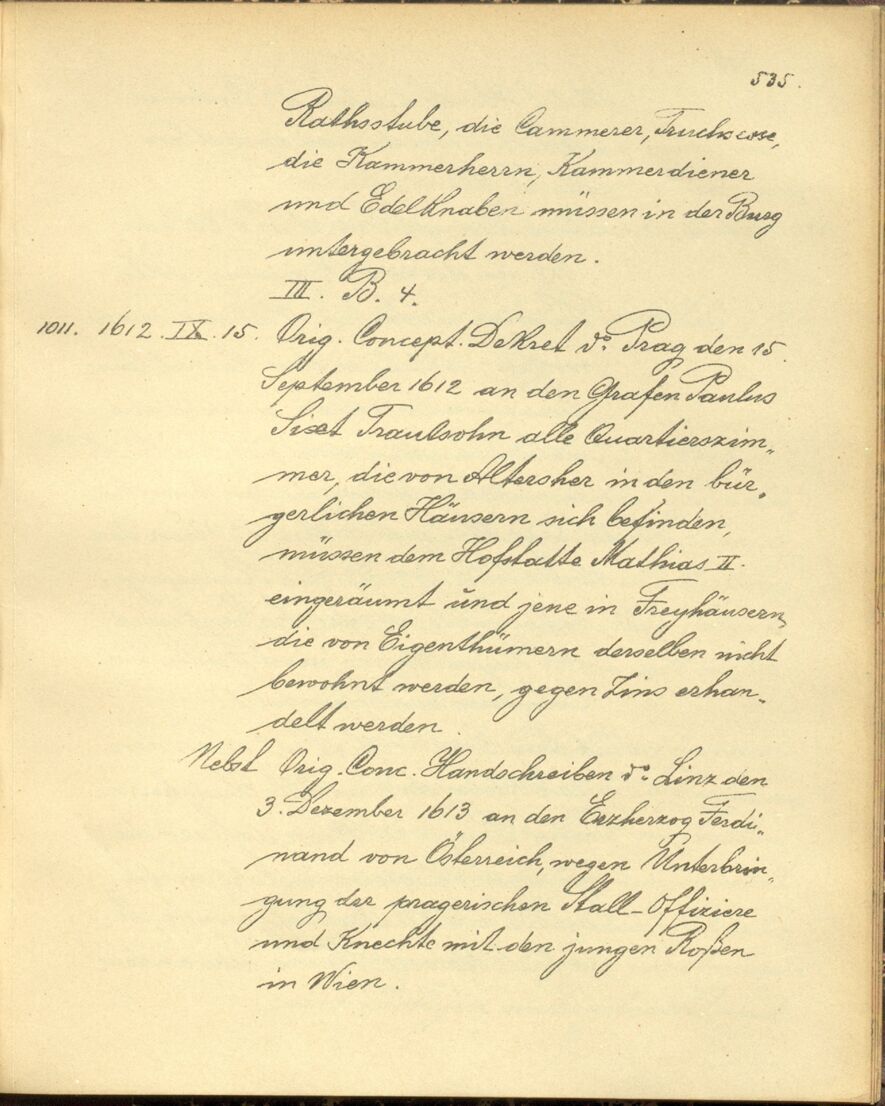 535.
Rathsstube, die Cammerer, Truchsesse,
die Kammerherrn, Kammerdiener
und Edelknaben müssen in der Burg
untergebracht werden.
III. B. 4.
1011. 1612. IX. 15. Orig. Concept. Dekret do. Prag den 15.
September 1612 an den Grafen Paulus
Sixt Trautsohn alle Quartierszim„
mer, die von Altersher in den bür„
gerlichen Häusern sich befinden,
müssen dem Hofstatte Mathias II.
eingeräumt und jene in Freyhäusern,
die von Eigenthümern derselben nicht
bewohnt werden, gegen Zins erhan„
delt werden.
Nebst Orig. Conc. Handschreiben do. Linz den
3. Dezember 1613 an den Erzherzog Ferdi„
nand von Österreich, wegen Unterbrin„
gung der pragerischen Stall-Offiziere
und Knechte mit den jungen Roßen
in Wien.